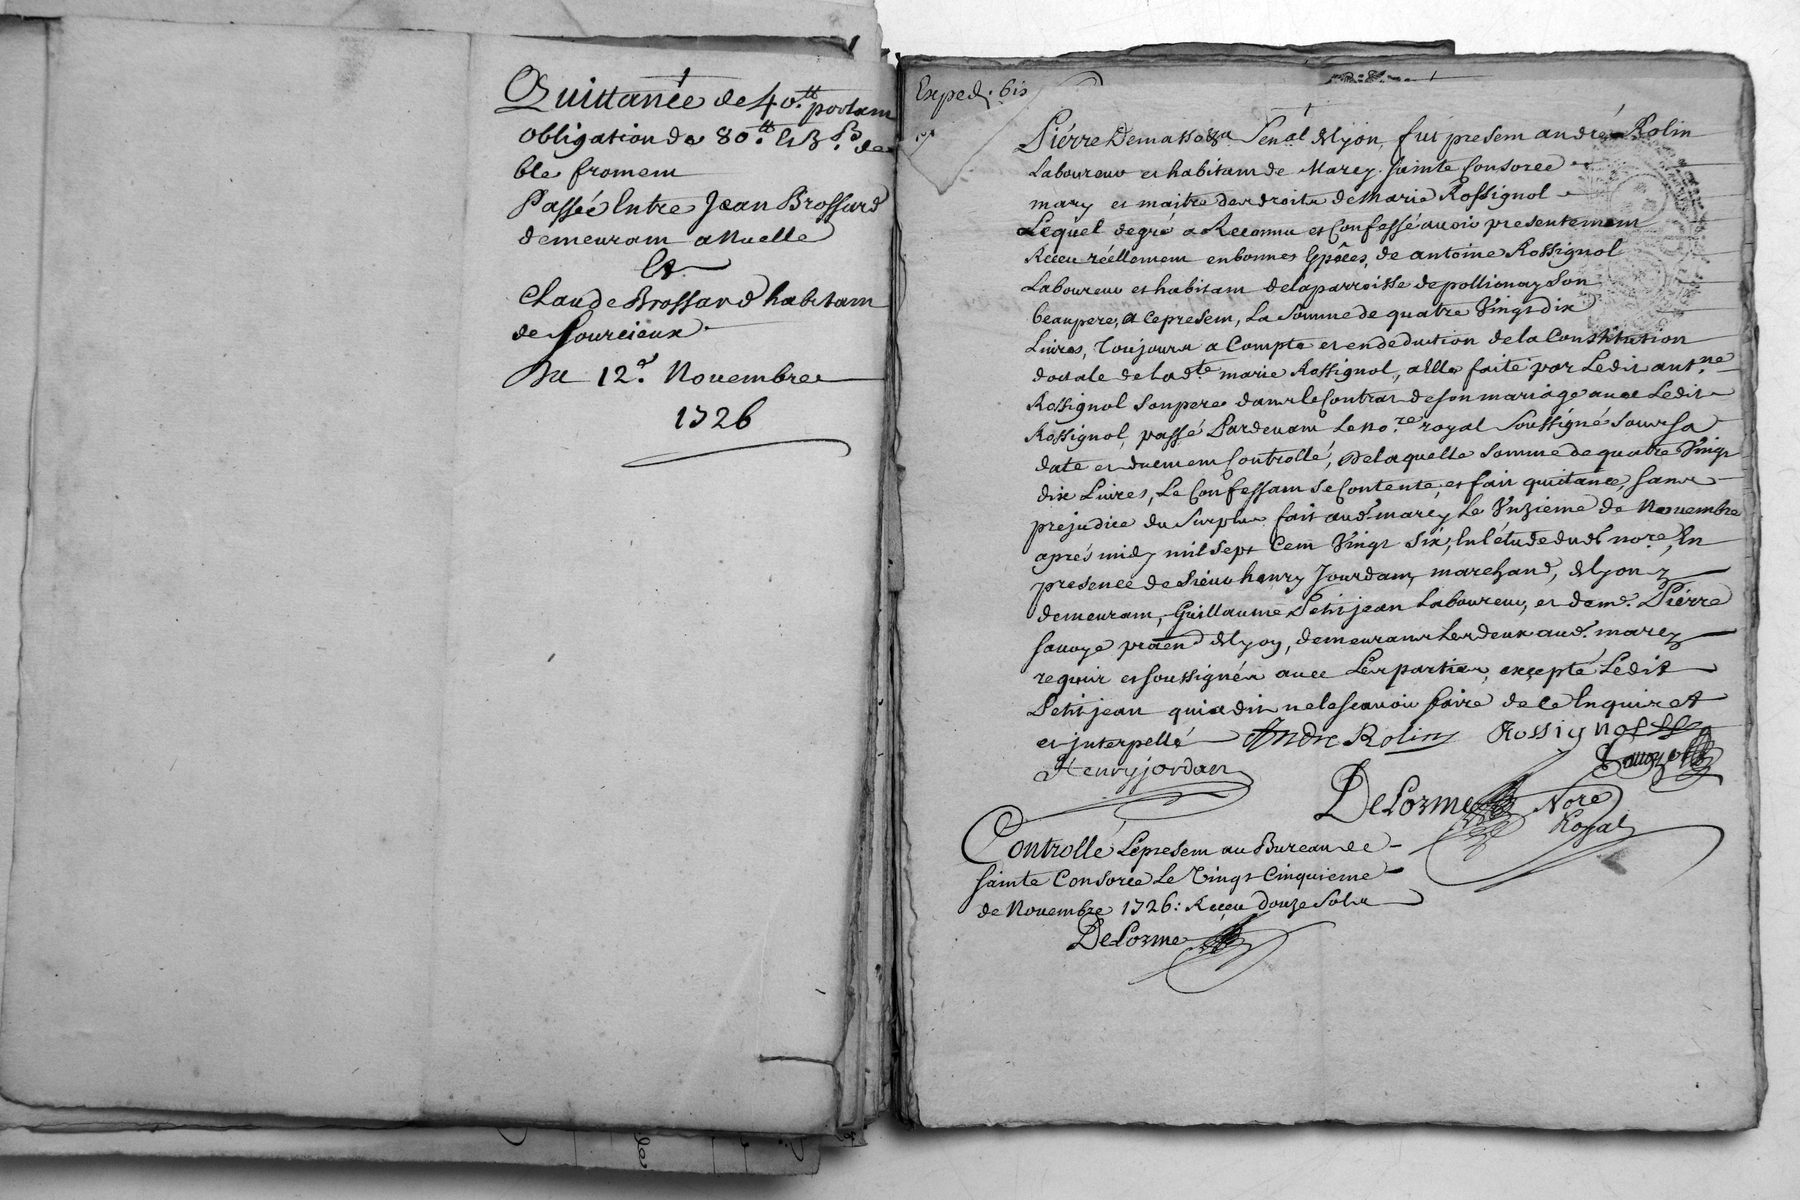 Quittance de 40.tt portam
obligation de 80.tt et B. de
ble fromem
Passée Entre Jean Brossard
demeuram a Nuelle
Et
Claude Brossard habitam
de Sourcieux
Du 12.e Nouembre
1726
Exped. bis
Pierre Demasso Sen.al de lyon, fut presem andré Rolin
Laboureur et habitam de Marcy Sainte Consorce
mary et maitre des droits de Marie Rossignol
Lequel de gré a Reconnu et Confessé auoir presentemem
Receu réellemem en bonnes Espéces, de antoine Rossignol
Laboureur et habitam de la parroisse de pollionay Son
beaupere, a ce presem, La Somme de quatre Vingt dix
Liures, Toujours a Compte et en deduction de la Constitution
dotale de la d.te marie Rossignol, a Elle faite par Ledit ant.ne
Rossignol Son pere dans le Contrat de son mariage auec Ledit
Rossignol, passé Pardeuam Le no.re royal Soussigné Sous sa
date et duemem Controllé, De laquelle Somme de quatre Vingt
dix Liures, Le Confessam Se Contente, et fait quittance, sans
prejudice du Surplus fait aud. marcy Le Vnzieme de Nouembre
aprés midy mil Sept Cem Vingt Six, En l'étude dud. no.re, En
presence de Sieur henry Jourdam, marchand, de lyon y
demeuram, Guillaume Petitjean Laboureur, et dem.e Pierre
Sauoye de lyon, demeurans Les deux aud. marcy
requis et soussignés auec Les parties, excepté Ledit
Petitjean qui a dit ne le scauoir faire de ce Enquis et
et interpellé Andre Rolin Rossignol
Sauoye
Henry jordan
DeLorme No.re
Royal
Controllé Le presem au Bureau de
Sainte Consorce Le Vingt Cinquieme
de Nouembre 1726: Receu douze Sols
DeLorme